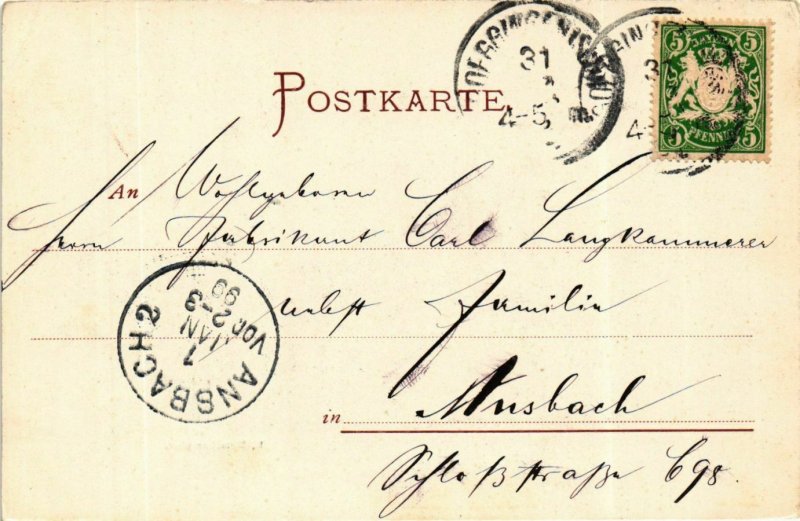 POSTKARTE.
31
4-5
5 5
5 5
PFENNIG
An Wohlgeboren
Herrn Fabrikant Carl Langkammerer
nebst Familie
in Ansbach
Schloßstraße 698.
ANSBACH 2
1
JAN
VOR 2-3
99